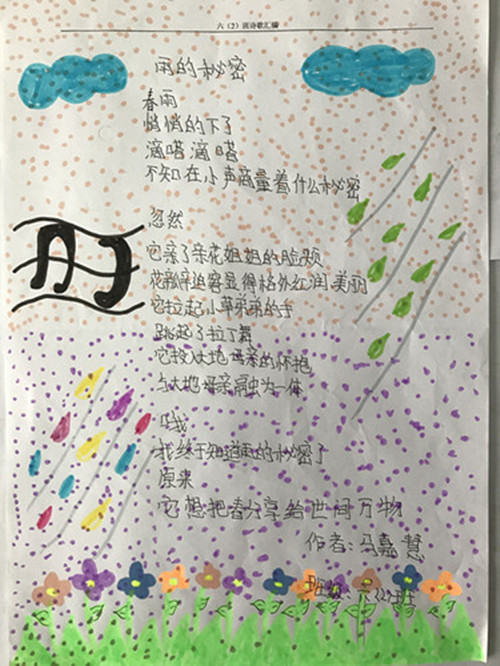 六(2)班诗歌汇编
雨的秘密
春雨
悄悄的下了
滴嗒滴嗒
不知在小声商量着什么秘密
忽然
它亲了亲花姐姐的脸颊
花瓣容显得格外红润 美丽
它拉起小草弟弟的手
跳起了拉丁舞
它投入大地母亲的怀抱
与大地母亲融为一体
哦
我终于知道雨的秘密了
原来
它想把春分享给世间万物
作者:马嘉慧
班级:六(2)班